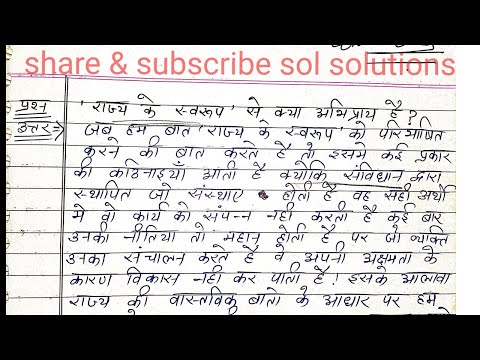 share & subscribe sol solutions
प्रश्न 'राज्य के स्वरूप' से क्या अभिप्राय है?
उत्तर⇒ जब हम बात 'राज्य के स्वरूप' को परिभाषित
करने की बात करते है तो इसमे कई प्रकार
की कठिनाइयाँ आती है क्योकि संविधान द्वारा
स्थापित जो संस्थाए होती है वह सही अर्थो
मे वो कार्य को संपन्न नही करती है कई बार
उनकी नीतिया तो महान् होती है पर जो व्यक्ति
उनका संचालन करते है वे अपनी अक्षमता के
कारण विकास नही कर पाती है! इसके आभावा
राज्य की वास्तविक बातो के आधार पर हम